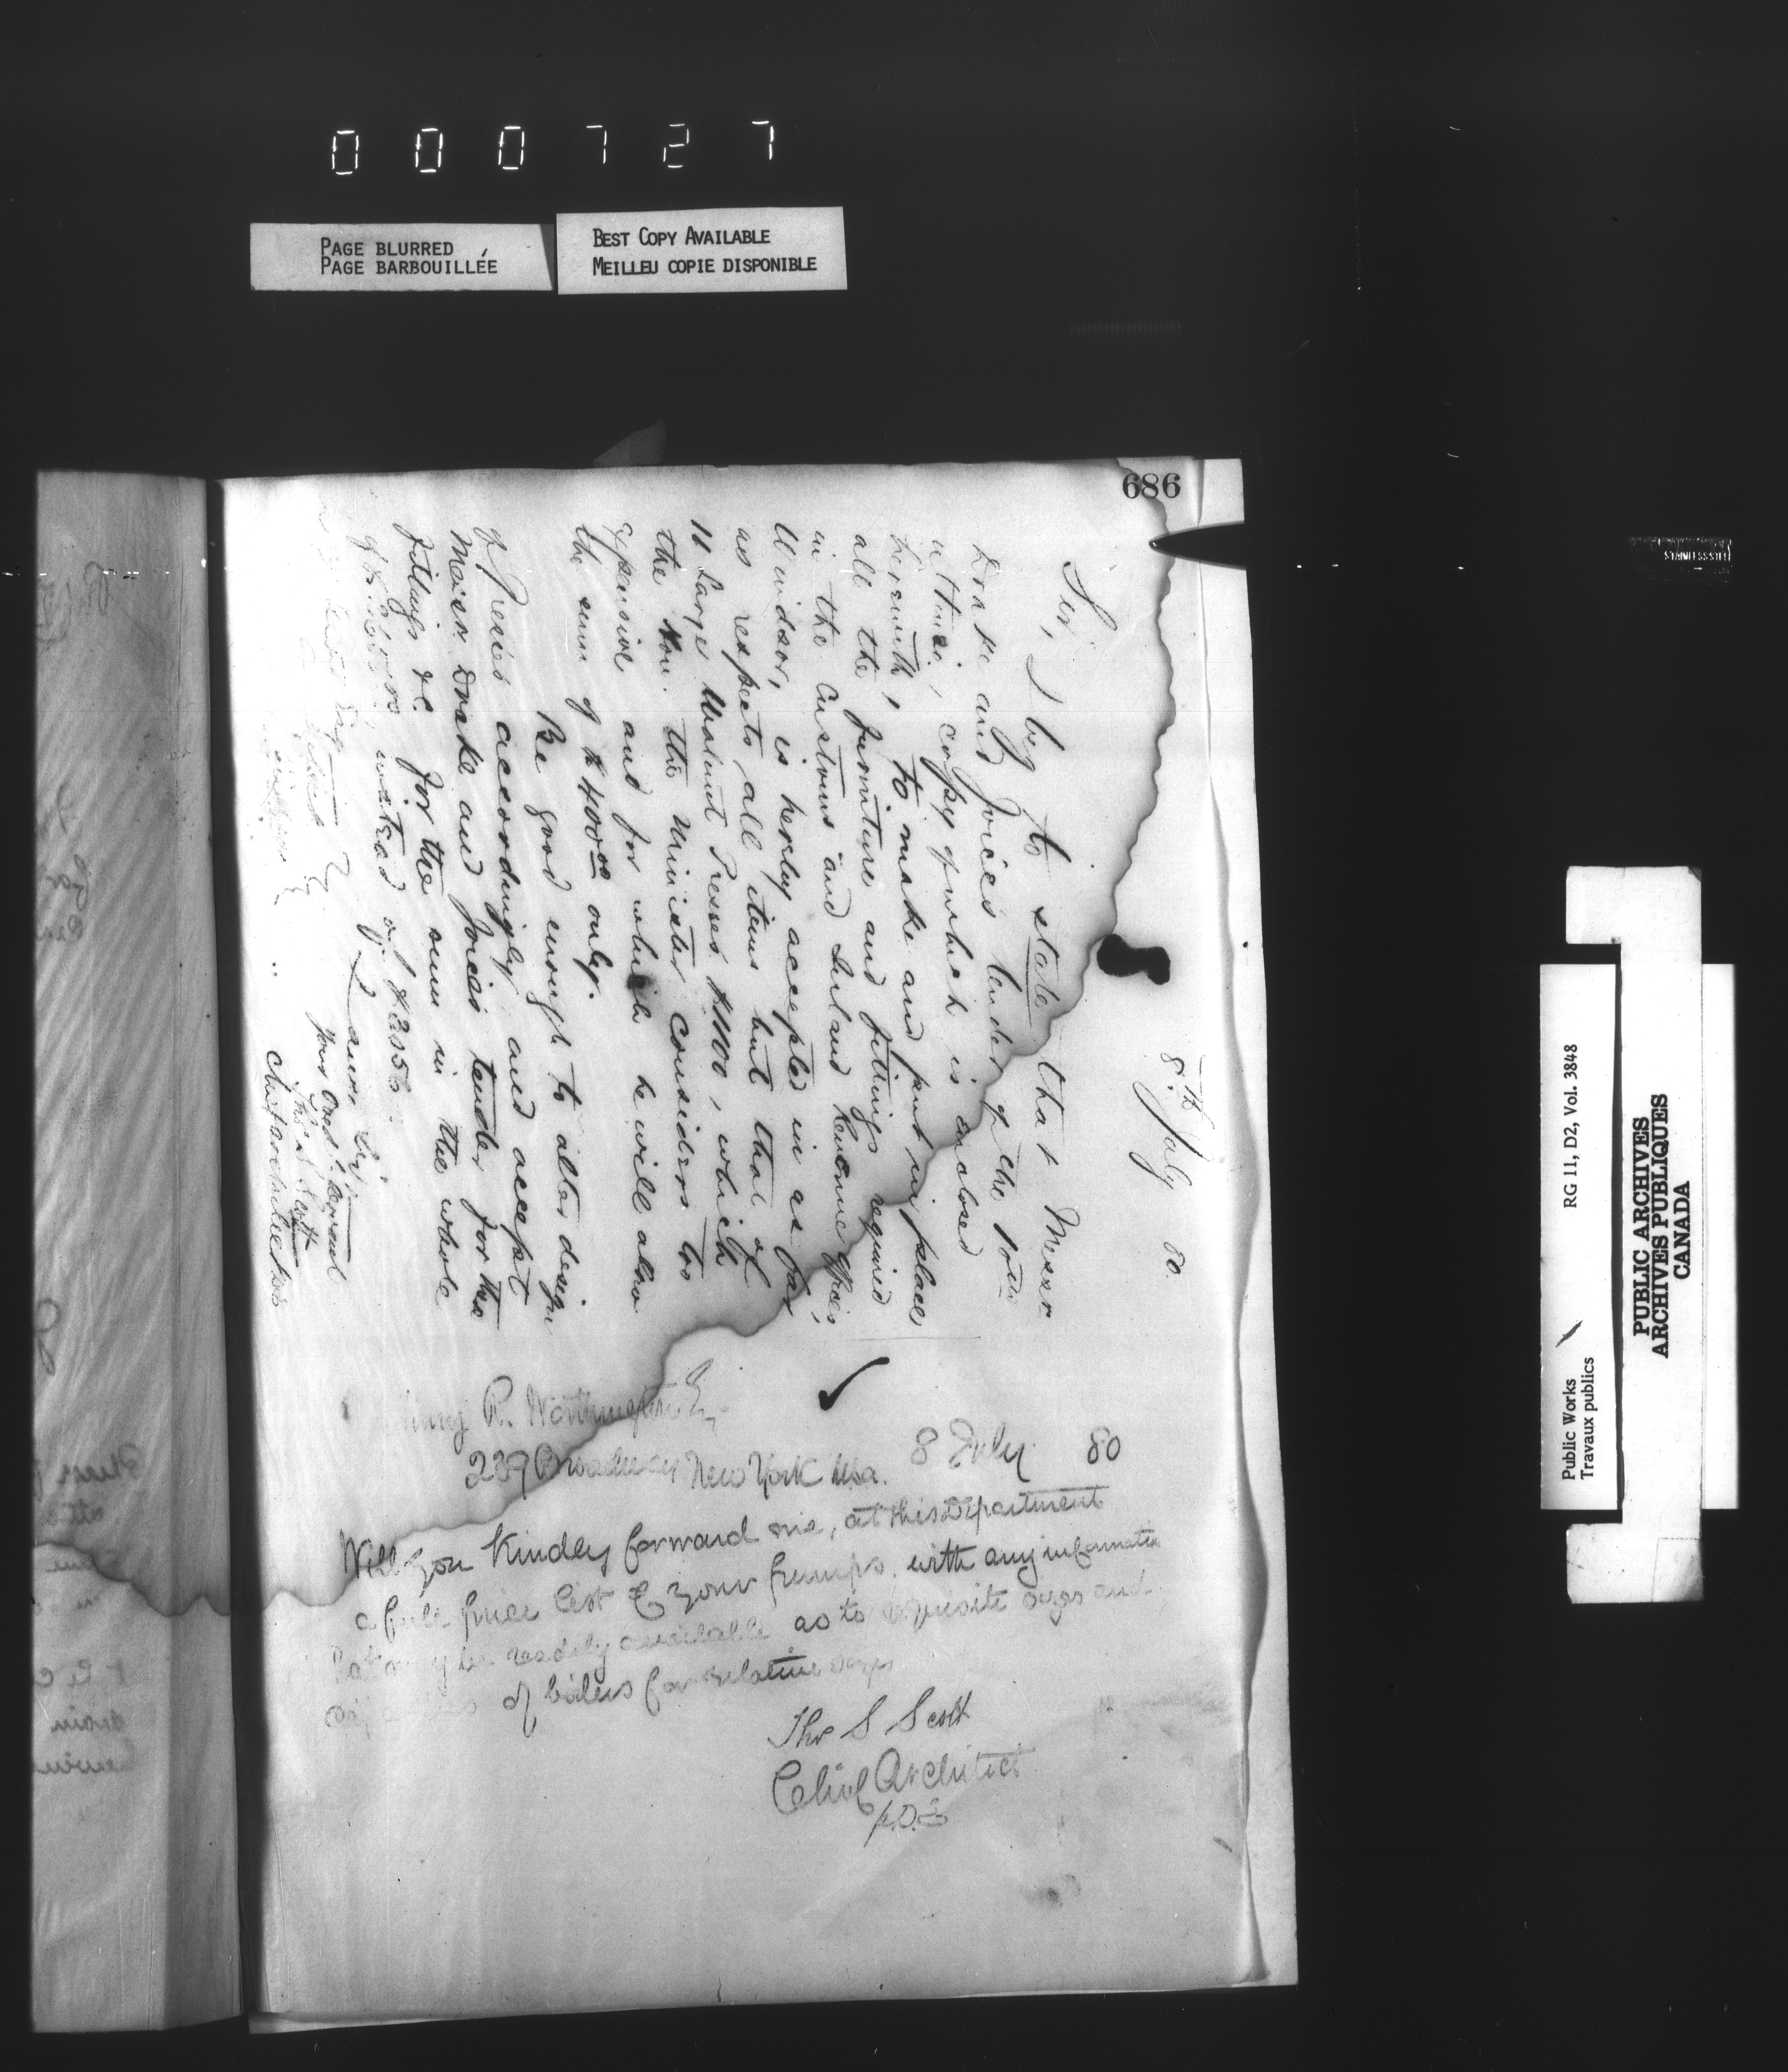 000727
PAGE BLURRED
PAGE BARBOUILLÉE
BEST COPY AVAILABLE
MEILLEU COPIE DISPONIBLE
686
8th July 80.
Sir,
I beg to state that Messr
Drake and Joices tender of the 10th
ultimo, copy of which is enclosed
herewith, to make and put in place
all the furniture and fittings required
in the Customs and Inland Revenue offices,
Windsor, is hereby accepted in as far
as respects all items but that of
11 Large Walnut Presses $1100, which
the Hon. the Minister considers too
expensive and for which he will allow
the sum of $400.00 only.
Be good enough to alter design
of Presses accordingly and accept
Messrs Drake and Joices tender for the
fittings &c. for the sum in the whole
instead of
I am, Sir,
Your Obed. Servant
Thos S. Scott
Chief Architect
R. Worthington
239 Broadway New York Usa.
8 July 80
Will you Kindly forward me, at this Department
a full price list of your pumps, with any information
that may be readily available as to requisite sizes and
of boilers for relative sizes
Tho S Scott
Chief Architect
p.D.E
Public Works
Travaux publics
RG 11, D2, Vol. 3848
PUBLIC ARCHIVES
ARCHIVES PUBLIQUES
CANADA